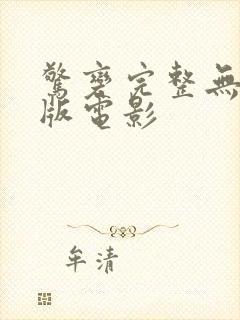 驚變完整無
版電影
牟清